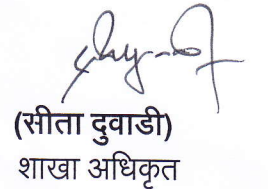 (सीता दुवाडी)
शाखा अधिकृत